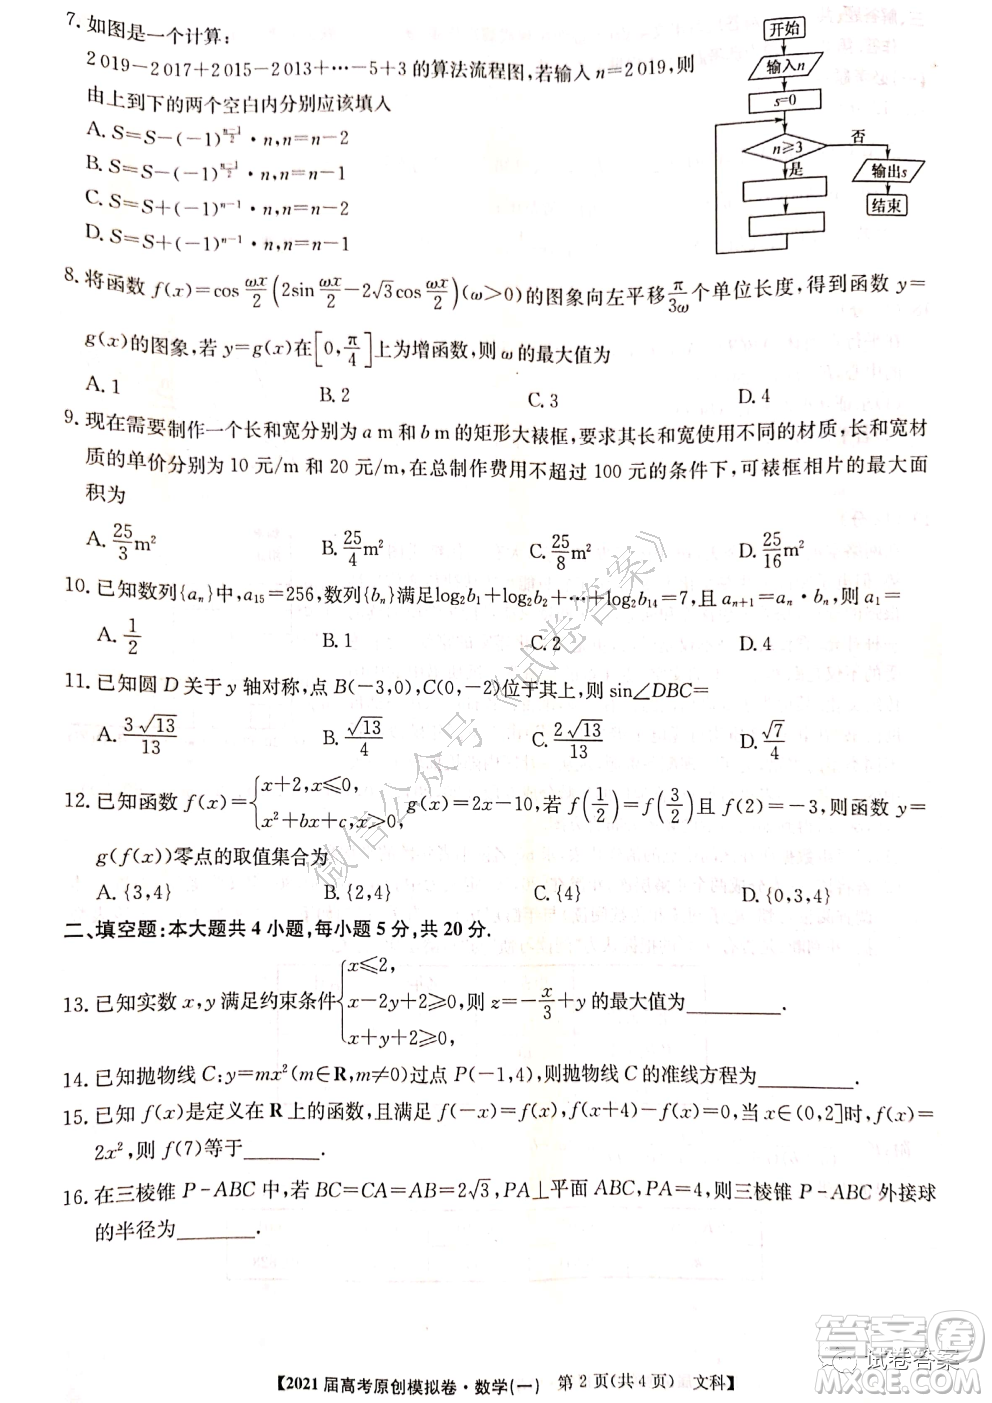 7. 如图是一个计算:
2019−2017+2015−2013+…−5+3 的算法流程图,若输入 n=2019,则
由上到下的两个空白内分别应该填入
A. S=S−(−1)^{\frac{n−1}{2}}·n,n=n−2
B. S=S−(−1)^{\frac{n−1}{2}}·n,n=n−1
C. S=S+(−1)^{n−1}·n,n=n−2
D. S=S+(−1)^{n−1}·n,n=n−1
开始
输入n
s=0
n≥3
否
是
输出s
结束
8. 将函数 f(x)=cos\frac{ωx}{2}(2sin\frac{ωx}{2}−2√3cos\frac{ωx}{2})(ω>0)的图象向左平移\frac{π}{3ω}个单位长度,得到函数 y=
g(x)的图象,若 y=g(x)在[0,\frac{π}{4}]上为增函数,则 ω 的最大值为
A. 1 B. 2 C. 3 D. 4
9. 现在需要制作一个长和宽分别为 a m 和 b m 的矩形大裱框,要求其长和宽使用不同的材质,长和宽材
质的单价分别为 10 元/m 和 20 元/m,在总制作费用不超过 100 元的条件下,可裱框相片的最大面
积为
A. \frac{25}{3}m² B. \frac{25}{4}m² C. \frac{25}{8}m² D. \frac{25}{16}m²
10. 已知数列{aₙ}中,a₁₅=256,数列{bₙ}满足log₂b₁+log₂b₂+…+log₂b₁₄=7,且 aₙ₊₁=aₙ·bₙ,则 a₁=
A. \frac{1}{2} B. 1 C. 2 D. 4
11. 已知圆 D 关于 y 轴对称,点 B(−3,0),C(0,−2)位于其上,则 sin∠DBC=
A. \frac{3√13}{13} B. \frac{√13}{4} C. \frac{2√13}{13} D. \frac{√7}{4}
12. 已知函数 f(x)={x+2,x≤0, x²+bx+c,x>0, g(x)=2x−10,若 f(\frac{1}{2})=f(\frac{3}{2})且 f(2)=−3,则函数 y=
g(f(x))零点的取值集合为
A. {3,4} B. {2,4} C. {4} D. {0,3,4}
二、填空题:本大题共 4 小题,每小题 5 分,共 20 分.
13. 已知实数 x,y 满足约束条件{x≤2, x−2y+2≥0, x+y+2≥0,则 z=−\frac{x}{3}+y 的最大值为________.
14. 已知抛物线 C:y=mx²(m∈R,m≠0)过点 P(−1,4),则抛物线 C 的准线方程为________.
15. 已知 f(x)是定义在 R 上的函数,且满足 f(−x)=f(x),f(x+4)−f(x)=0,当 x∈(0,2]时,f(x)=
2x²,则 f(7)等于______.
16. 在三棱锥 P−ABC 中,若 BC=CA=AB=2√3,PA⊥平面 ABC,PA=4,则三棱锥 P−ABC 外接球
的半径为______.
微信公众号《试卷答案》
答案卷
试卷答案
【2021 届高考原创模拟卷·数学(一) 第 2 页(共 4 页) 文科】